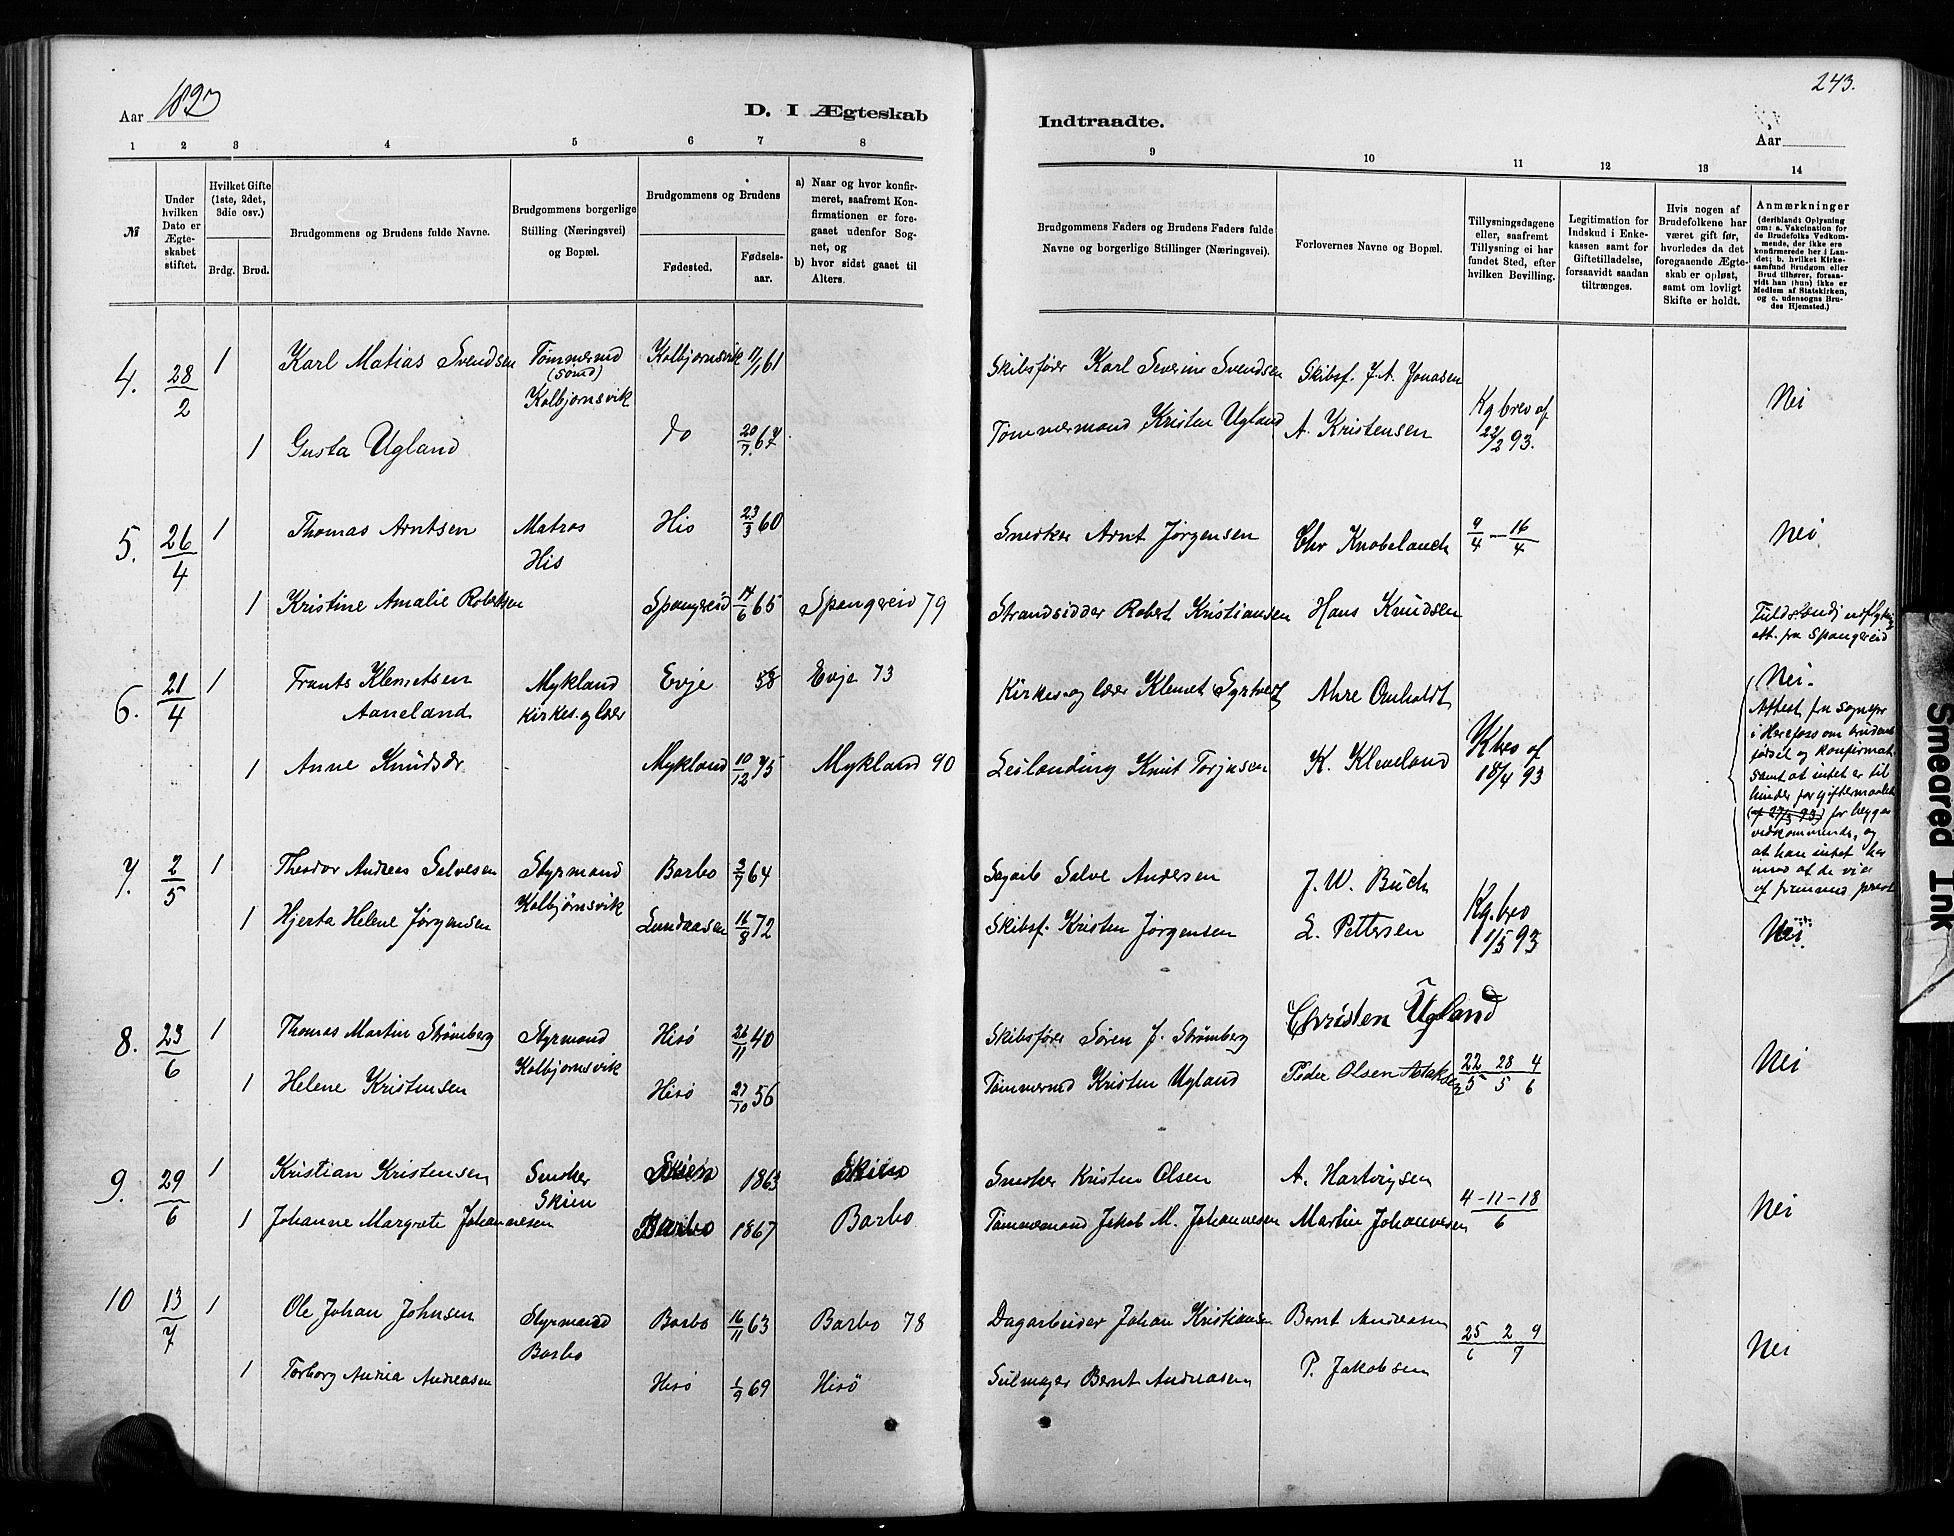 243.
Aar 1893
D. I Ægteskab
Indtraadte.
Aar
1 2 3 4 5 6 7 8
9 10 11 12 13 14
№
Under hvilken Dato er Ægteskabet stiftet.
Hvilket Gifte (1ste, 2det, 3die osv.)
Brdg. Brud.
Brudgommens og Brudens fulde Navne.
Brudgommens borgerlige Stilling (Næringsvei) og Bopæl.
Brudgommens og Brudens
Fødested.
Fødselsaar.
a) Naar og hvor konfirmeret, saafremt Konfirmationen er foregaaet udenfor Sognet, og
b) hvor sidst gaaet til Alters.
Brudgommens Faders og Brudens Faders fulde Navne og borgerlige Stillinger (Næringsvei).
Forlovernes Navne og Bopæl.
Tillysningsdagene eller, saafremt Tillysning ei har fundet Sted, efter hvilken Bevilling.
Legitimation for Indskud i Enkekassen samt for Giftetilladelse, forsaavidt saadan tiltrænges.
Hvis nogen af Brudefolkene har været gift før, hvorledes da det foregaaende Ægteskab er opløst, samt om lovligt Skifte er holdt.
Anmærkninger
(deriblandt Oplysning om: a. Vakcination for Brudefolks Vedkommende, der ikke ere konfirmerede her i Landet; b. hvilket Kirkesamfund Brudgom eller Brud tilhører, forsaavidt han (hun) ikke er Medlem af Statskirken, og c. udensogns Brudes Hjemsted.)
4. 28/2 1 Karl Matias Svendsen Tømmermd (Sømd) Kolbjørnsvik Kolbjørnsvik 11/1 61 Skibsfører Karl Severin Svendsen Skibsf. J. A. Jonasen Kgbrev af 22/2 93. Nei
1 Gusta Ugland do 20/7 67 Tømmermand Kristen Ugland A. Kristensen
5. 26/4 1 Thomas Arntsen Matros His His 23/3 60 Snedker Arnt Jørgensen Chr Knobelauch 9/4 – 16/4 Nei
1 Kristine Amalie Robertsen Spangereid 14/6 65 Spangereid 79 Strandsidder Robert Kristiansen Hans Knudsen
att. fra Spangereid
6. 21/4 1 Frants Klemetsen Aaneland Mykland Kirkes. og lærer Evje 58 Evje 73 Kirkes. og lærer Klemet Ahre Omholdt Kbrev af 18/4 93 Nei.
Attest fra Sognepr i Herefoss om brudens fødsel og konfirmat. samt at intet er til hinder for giftermaalet (af 27/3 93) for begges vedkommende, og at han intet har imod at de vies af fremmed prest
1 Anne Knudsdr Mykland 10/12 75 Mykland 90 Leilending Knut Torjusen K. Kleveland
7. 2/5 1 Theodor Andreas Salvesen Styrmand Kolbjørnsvik Barbo 3/7 64 Sagarb Salve Andersen J. W. Buch Kg.brev 1/5 93 Nei
1 Hjerta Helene Jørgensen Lundaasen 16/8 72 Skibsf. Kristen Jørgensen L. Pettersen
8. 23/6 1 Thomas Martin Strømberg Styrmand Kolbjørnsvik Hisø 26/11 40 Skibsfører Søren J. Strømberg Christen Ugland 22/5 28/5 4/6 Nei
1 Helene Kristensen Hisø 27/10 56 Tømmermd Kristen Ugland Peder Olsen
9. 29/6 1 Kristian Kristensen Snedker Skien Skien 1863 Skien Snedker Kristen Olsen A. Hartvigsen 4–11–18/6 Nei
1 Johanne Margrete Johannesen Barbo 1867 Barbo Tømmermand Jakob M. Johannesen Martin Johannesen
10 13/7 1 Ole Johan Johnsen Styrmand Barbo Barbo 16/11 63 Barbo 78 Dagarbeider Johan Kristiansen Bernt Andreasen 25/6 2 9/7 Nei
1 Torborg Andrea Andreasen Hisø 1/9 69 Hisø Seilmager Bernt Andreasen P. Jakobsen
Smeared Ink